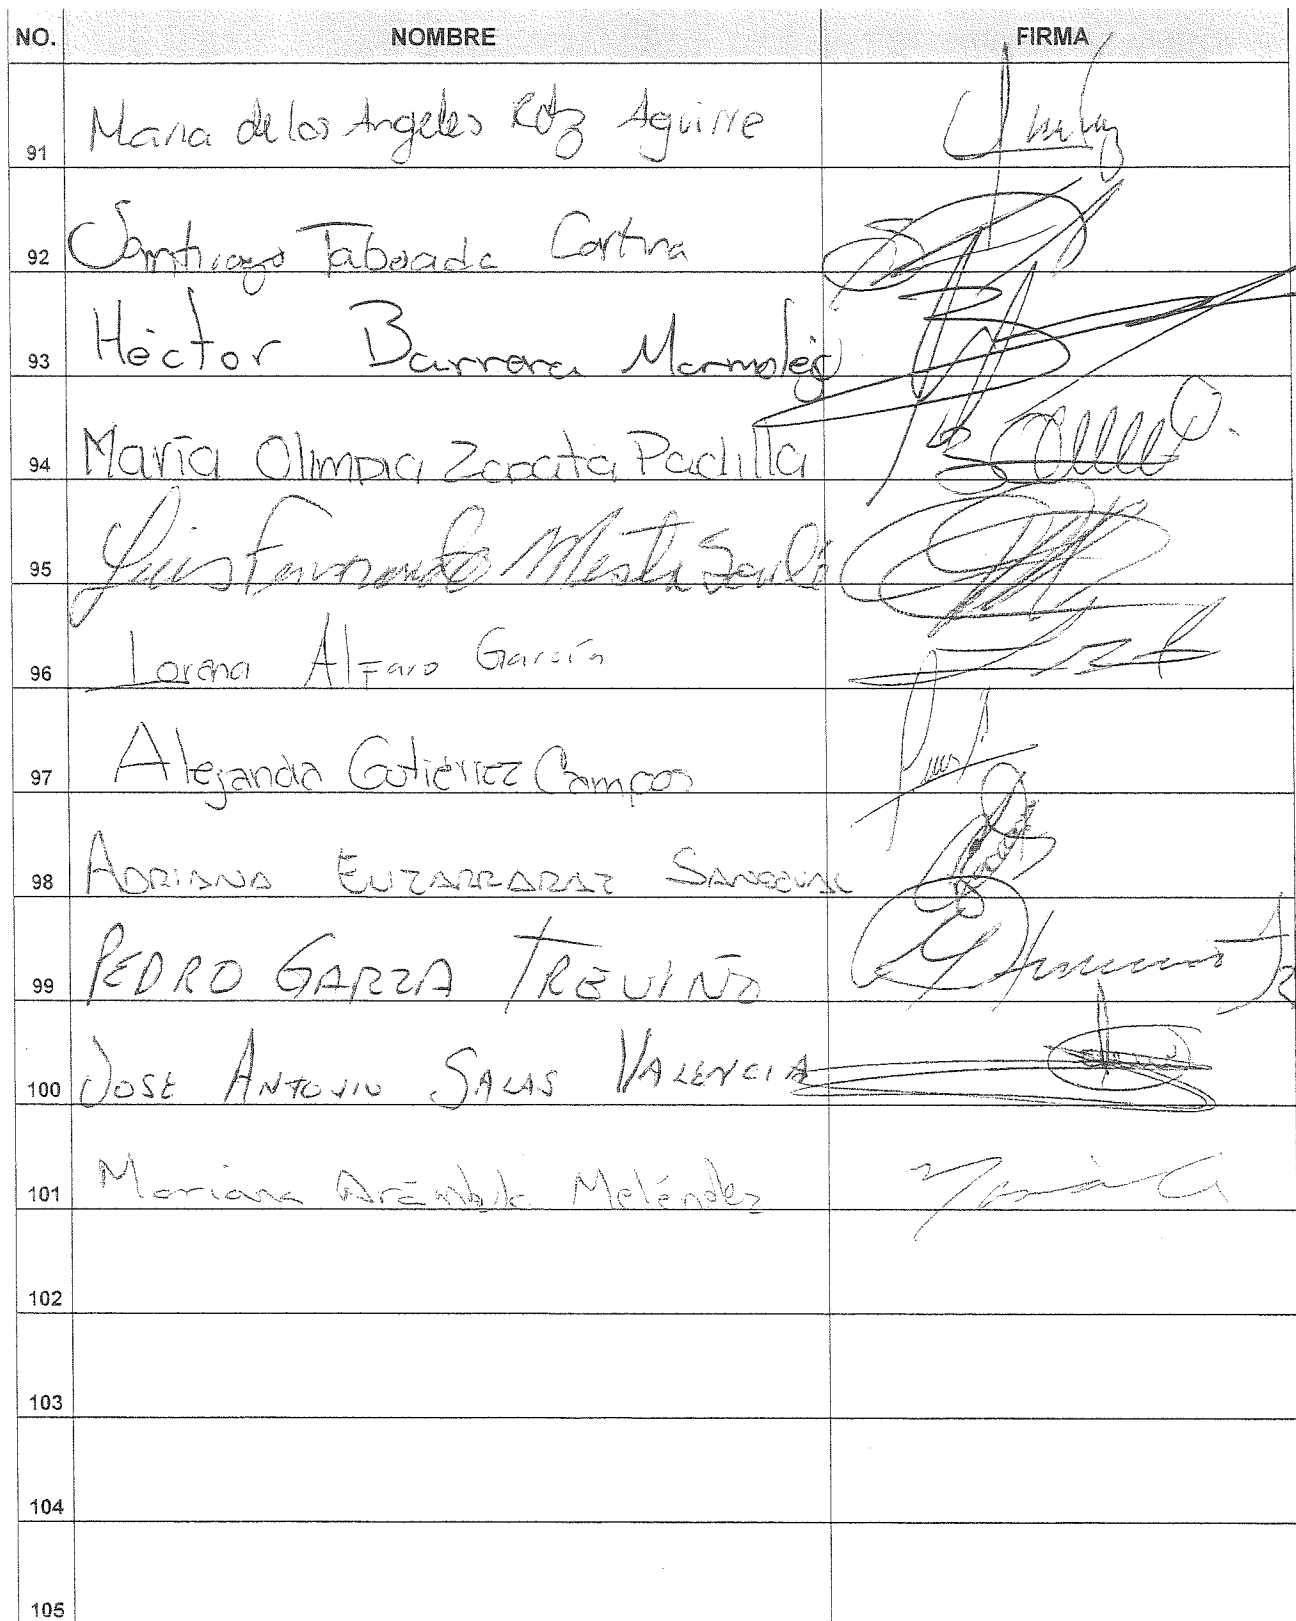 NO. NOMBRE FIRMA
91 Maria de los Angeles Rdz Aguirre
92 Santiago Taboada Cortina
93 Héctor Barrera Marmolejo
94 María Olimpia Zapata Padilla
95 Luis Fernando Mesta
96 Lorena Alfaro García
97 Alejandra Gutiérrez Campos
98 ADRIANA SANDOVAL
99 PEDRO GARZA TREVIÑO
100 JOSE ANTONIO SALAS VALENCIA
101 Mariana Arámbula Meléndez
102
103
104
105